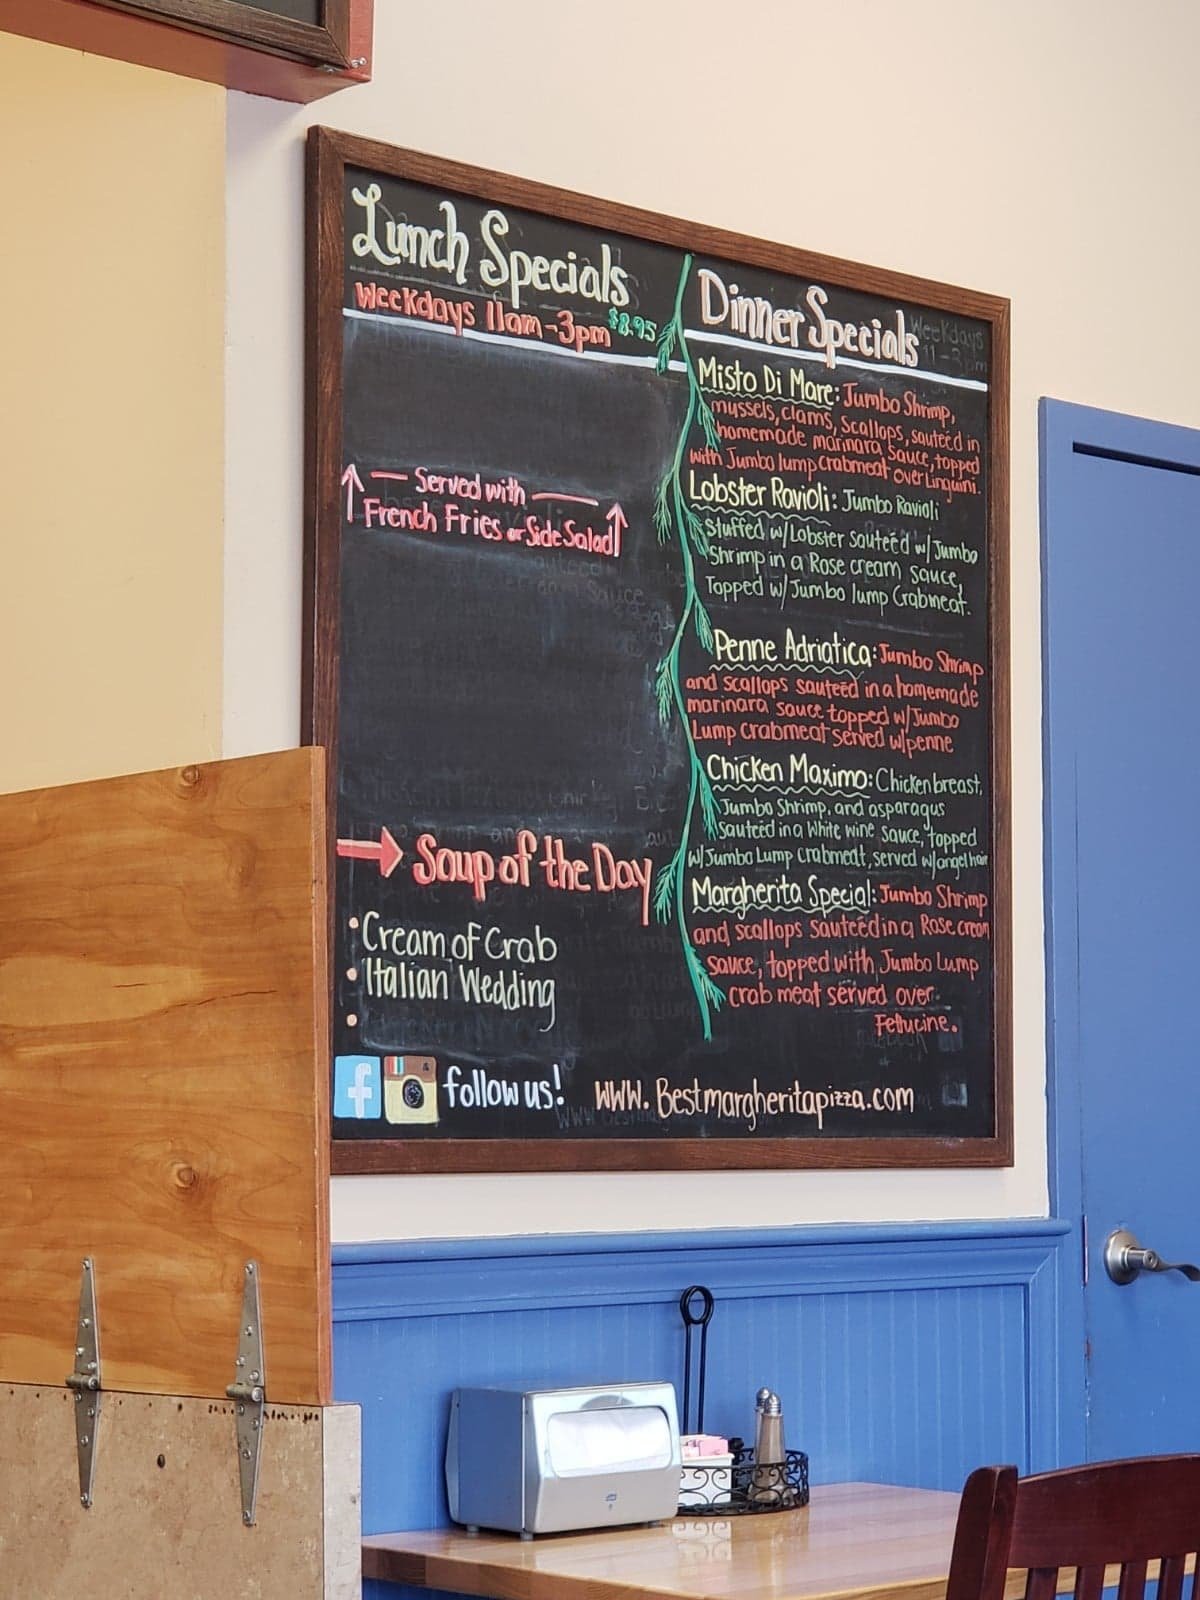 Lunch Specials
Weekdays 11am-3pm $8.95
Served with
French Fries or Side Salad
Soup of the Day
• Cream of Crab
• Italian Wedding
•
follow us! www.Bestmargheritapizza.com
Dinner Specials
Weekdays
11-3pm
Misto Di Mare: Jumbo Shrimp,
mussels, clams, scallops, sauteéd in
homemade marinara sauce, topped
with Jumbo lump crabmeat over Linguini.
Lobster Ravioli: Jumbo Ravioli
Stuffed w/Lobster sauteéd w/Jumbo
Shrimp in a Rose cream sauce,
Topped w/Jumbo lump Crabmeat.
Penne Adriatica: Jumbo Shrimp
and scallops sauteéd in a homemade
marinara sauce topped w/Jumbo
Lump crabmeat served w/penne
Chicken Maximo: Chicken breast,
Jumbo Shrimp, and asparagus
Sauteéd in a White wine sauce, topped
w/Jumbo Lump crabmeat, served w/angel hair
Margherita Special: Jumbo Shrimp
and scallops sauteéd in a Rose cream
sauce, topped with Jumbo Lump
crab meat served over
Fettucine.